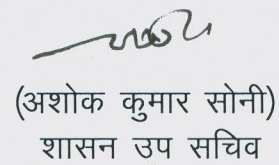 (अशोक कुमार सोनी)
शासन उप सचिव